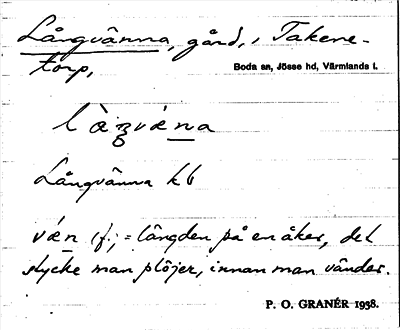 Långvänna, gård, i Takene-
torp,
Boda sn, Jösse hd, Värmlands l.
Långvänna kb
væn (f.; = längden på en åker, det
stycke man plöjer, innan man vänder.
P. O. GRANÉR 1938.